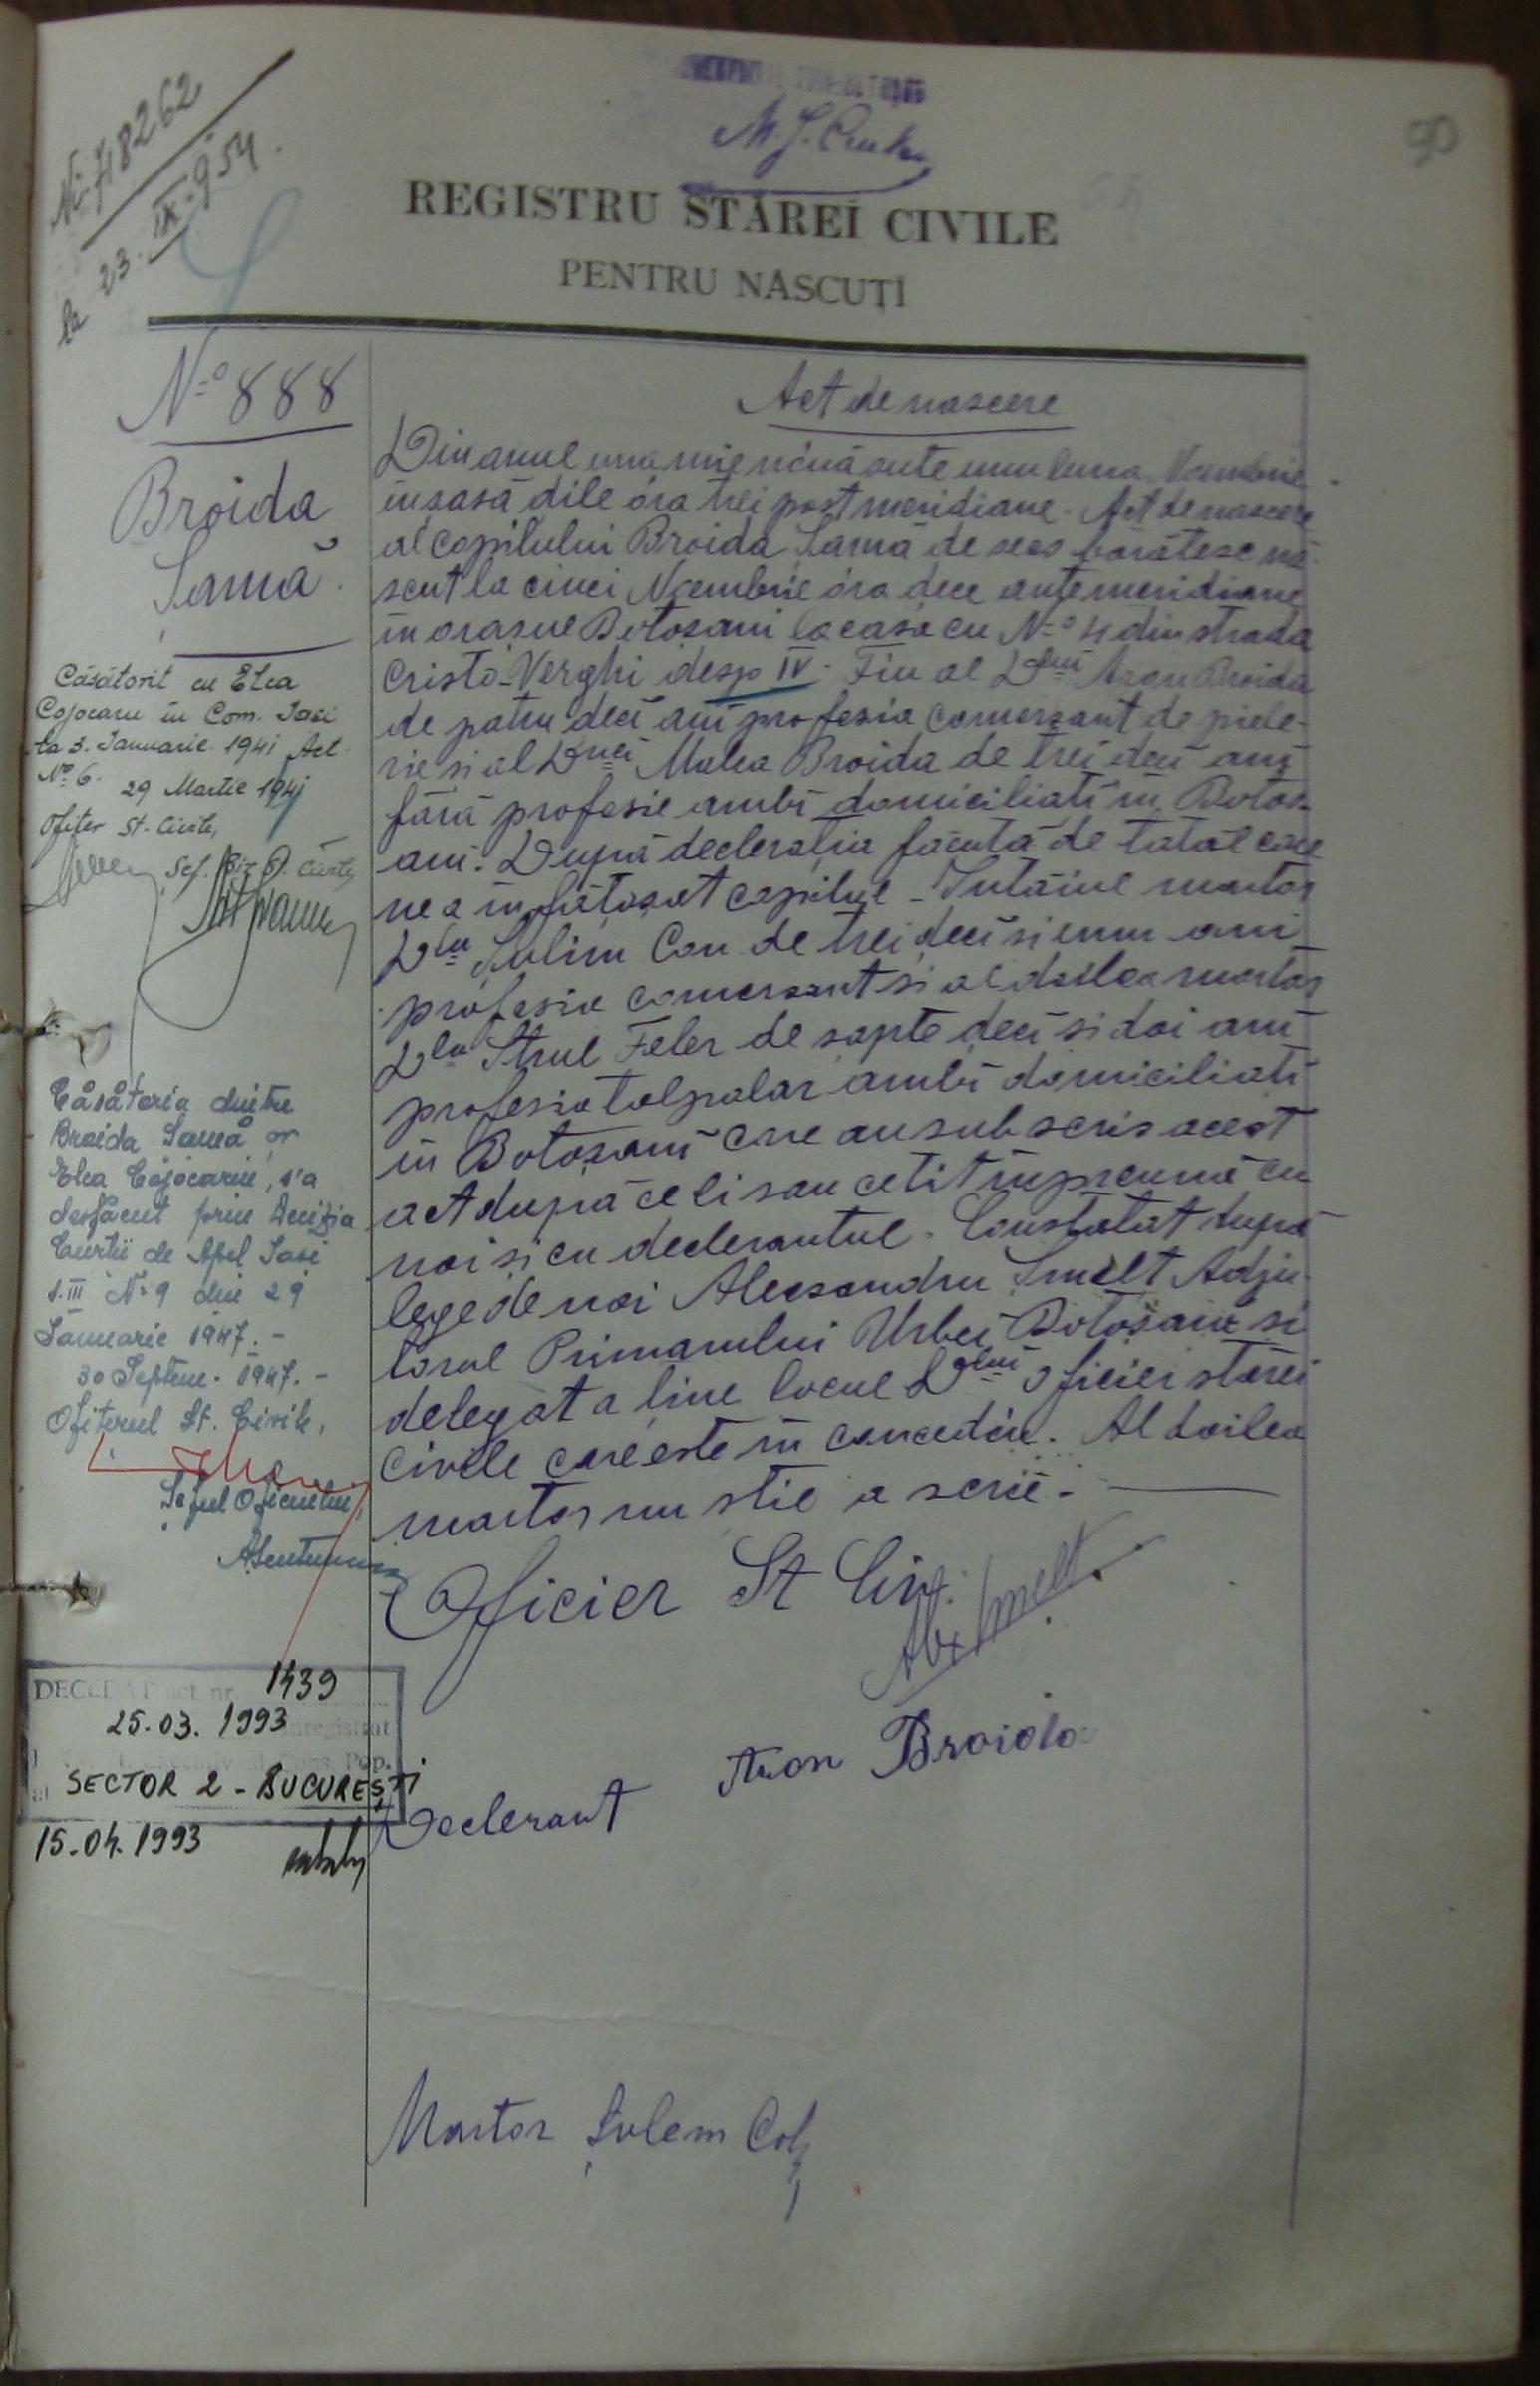 Nr. 48262
la 23. IX. 954.
50
REGISTRU STĂREI CIVILE
PENTRU NĂSCUȚI
No 888
Broida
Șamă.
Căsătorit cu Elca
Cojocaru în Com. Iași
la 3. Ianuarie 1941 Act
No 6.
29 Martie 1941
Ofițer St. Civile,
Căsătoria dintre
Broida Șamă și
Elca Cojocariu, s'a
desfăcut prin Decizia
Curtii de Apel Iasi
s. III No 9 din 29
Ianuarie 1947. -
30 Septem. 1947. -
Ofiterul St. Civile,
Șeful Oficiului,
DECEDAT act nr. 1439
25.03.1993 înregistrat
Cons. Pop.
al SECTOR 2 - BUCUREȘTI
15.04.1993
Act de nascere
Din anul una mie nóuă sute unu luna Noembrie
in șasă dile óra trei post meridiane. Act de nascere
al copilului Broida Șamă de secs bărătesc nă
scut la cinci Noembrie óra dece ante meridiane
in orașul Botoșani la casa cu No 4 din strada
Cristo-Verghi desp IV. Fiu al Dlui Aron Broida
de patru deci ani profesia comersant de piele-
rie si al Dnei Malca Broida de trei deci ani
fără profesie ambi domiciliati in Botoș-
ani. După declerația făcută de tatăl care
ne a infătoșat copilul - Intăiul martor
Dlu Șulim Con de trei deci si unu ani
profesia comersant si al doilea martor
Dlu Strul Feler de sapte deci si doi ani
profesia talpalar ambi domiciliati
in Botoșani care au subscris acest
act după ce li sau cetit împreună cu
noi si cu declerantul. Constatat după
lege de noi Alecsandru Smelt Adju-
torul Primarului Urbei Botoșani si
delegat a tine locul Dlui oficier stărei
civile care este in concediu. Al doilea
martor nu stie a scrie. -
Oficier St Civ.
Al. Smelt
Declerant Aron Broida
Martor Șulem Coh